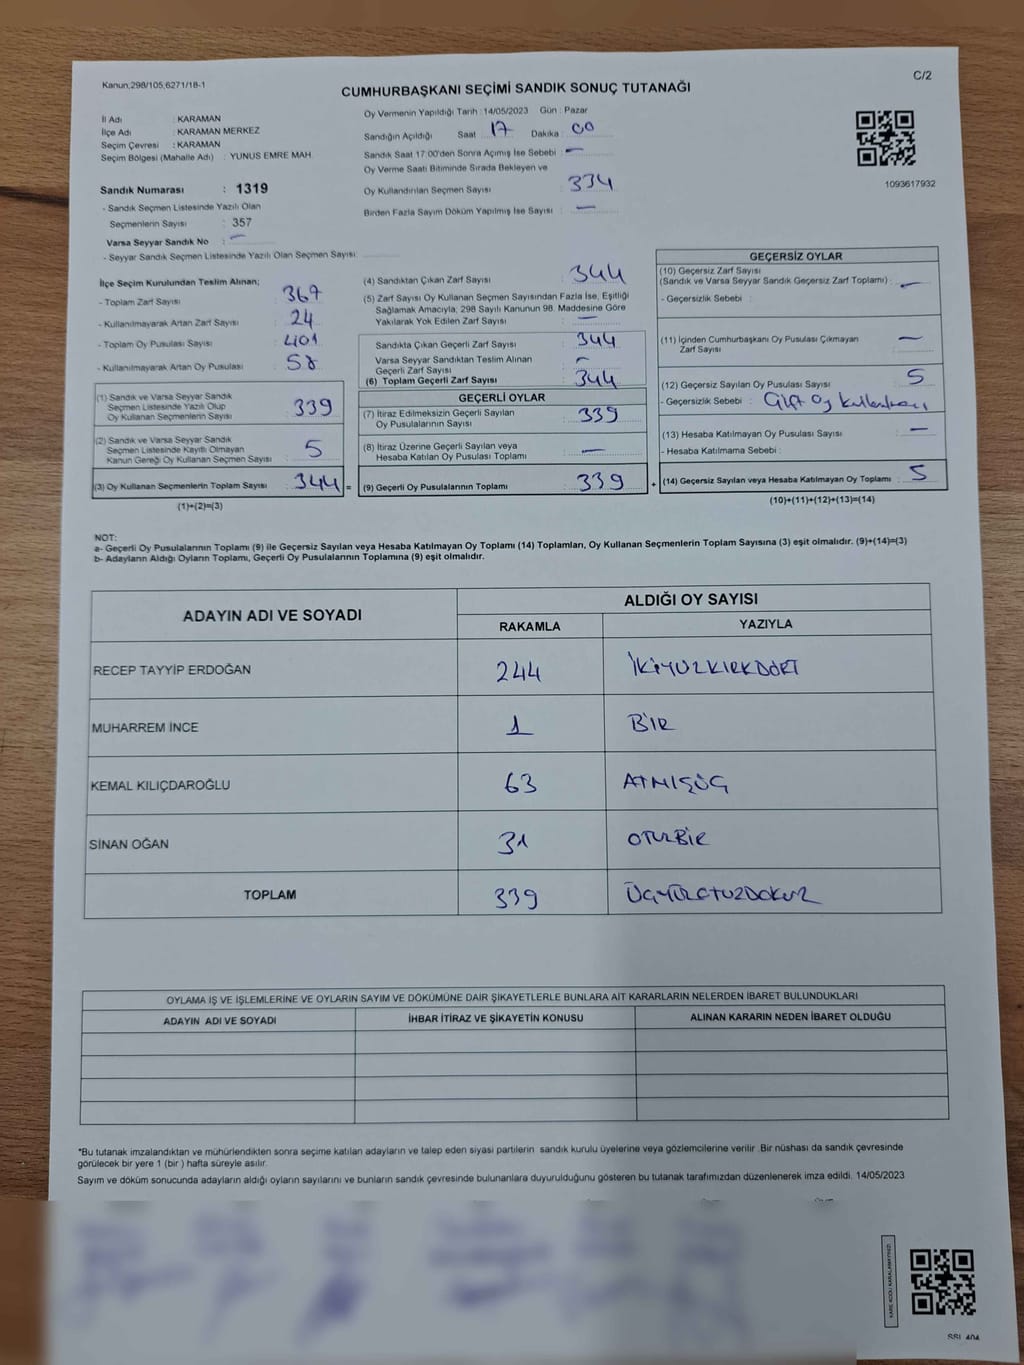 Kanun;298/105,6271/18-1
C/2
CUMHURBAŞKANI SEÇİMİ SANDIK SONUÇ TUTANAĞI
İl Adı : KARAMAN
İlçe Adı : KARAMAN MERKEZ
Seçim Çevresi : KARAMAN
Seçim Bölgesi (Mahalle Adı) : YUNUS EMRE MAH.
Sandık Numarası : 1319
- Sandık Seçmen Listesinde Yazılı Olan
Seçmenlerin Sayısı : 357
Varsa Seyyar Sandık No : —
- Seyyar Sandık Seçmen Listesinde Yazılı Olan Seçmen Sayısı:
Oy Vermenin Yapıldığı Tarih : 14/05/2023 Gün : Pazar
Sandığın Açıldığı Saat : 17 Dakika : 00
Sandık Saat 17:00'den Sonra Açımış İse Sebebi : —
Oy Verme Saati Bitiminde Sırada Bekleyen ve
Oy Kullandırılan Seçmen Sayısı : 334
Birden Fazla Sayım Döküm Yapılmış İse Sayısı : —
1093617932
İlçe Seçim Kurulundan Teslim Alınan;
- Toplam Zarf Sayısı : 367
- Kullanılmayarak Artan Zarf Sayısı : 24
- Toplam Oy Pusulası Sayısı : 401
- Kullanılmayarak Artan Oy Pusulası : 58
(1) Sandık ve Varsa Seyyar Sandık
Seçmen Listesinde Yazılı Olup
Oy Kullanan Seçmenlerin Sayısı : 339
(2) Sandık ve Varsa Seyyar Sandık
Seçmen Listesinde Kayıtlı Olmayan
Kanun Gereği Oy Kullanan Seçmen Sayısı : 5
(3) Oy Kullanan Seçmenlerin Toplam Sayısı : 344 =
(1)+(2)=(3)
(4) Sandıktan Çıkan Zarf Sayısı : 344
(5) Zarf Sayısı Oy Kullanan Seçmen Sayısından Fazla İse, Eşitliği
Sağlamak Amacıyla; 298 Sayılı Kanunun 98. Maddesine Göre
Yakılarak Yok Edilen Zarf Sayısı : —
Sandıkta Çıkan Geçerli Zarf Sayısı : 344
Varsa Seyyar Sandıktan Teslim Alınan
Geçerli Zarf Sayısı : —
(6) Toplam Geçerli Zarf Sayısı : 344
GEÇERLİ OYLAR
(7) İtiraz Edilmeksizin Geçerli Sayılan
Oy Pusulalarının Sayısı : 339
(8) İtiraz Üzerine Geçerli Sayılan veya
Hesaba Katılan Oy Pusulası Toplamı : —
(9) Geçerli Oy Pusulalarının Toplamı : 339 +
GEÇERSİZ OYLAR
(10) Geçersiz Zarf Sayısı
(Sandık ve Varsa Seyyar Sandık Geçersiz Zarf Toplamı) : —
- Geçersizlik Sebebi :
(11) İçinden Cumhurbaşkanı Oy Pusulası Çıkmayan
Zarf Sayısı : —
(12) Geçersiz Sayılan Oy Pusulası Sayısı : 5
- Geçersizlik Sebebi : Çift Oy Kullanması
(13) Hesaba Katılmayan Oy Pusulası Sayısı : —
- Hesaba Katılmama Sebebi :
(14) Geçersiz Sayılan veya Hesaba Katılmayan Oy Toplamı : 5
(10)+(11)+(12)+(13)=(14)
NOT:
a- Geçerli Oy Pusulalarının Toplamı (9) ile Geçersiz Sayılan veya Hesaba Katılmayan Oy Toplamı (14) Toplamları, Oy Kullanan Seçmenlerin Toplam Sayısına (3) eşit olmalıdır. (9)+(14)=(3)
b- Adayların Aldığı Oyların Toplamı, Geçerli Oy Pusulalarının Toplamına (9) eşit olmalıdır.
ADAYIN ADI VE SOYADI
ALDIĞI OY SAYISI
RAKAMLA YAZIYLA
RECEP TAYYİP ERDOĞAN 244 İKİYÜZKIRKDÖRT
MUHARREM İNCE 1 BİR
KEMAL KILIÇDAROĞLU 63 ATMIŞÜÇ
SİNAN OĞAN 31 OTUZBİR
TOPLAM 339 ÜÇYÜZOTUZDOKUZ
OYLAMA İŞ VE İŞLEMLERİNE VE OYLARIN SAYIM VE DÖKÜMÜNE DAİR ŞİKAYETLERLE BUNLARA AİT KARARLARIN NELERDEN İBARET BULUNDUKLARI
ADAYIN ADI VE SOYADI İHBAR İTİRAZ VE ŞİKAYETİN KONUSU ALINAN KARARIN NEDEN İBARET OLDUĞU
*Bu tutanak imzalandıktan ve mühürlendikten sonra seçime katılan adayların ve talep eden siyasi partilerin sandık kurulu üyelerine veya gözlemcilerine verilir. Bir nüshası da sandık çevresinde
görülecek bir yere 1 (bir ) hafta süreyle asılır.
Sayım ve döküm sonucunda adayların aldığı oyların sayılarını ve bunların sandık çevresinde bulunanlara duyurulduğunu gösteren bu tutanak tarafımızdan düzenlenerek imza edildi. 14/05/2023
KARE KODU KARALAMAYINIZ!